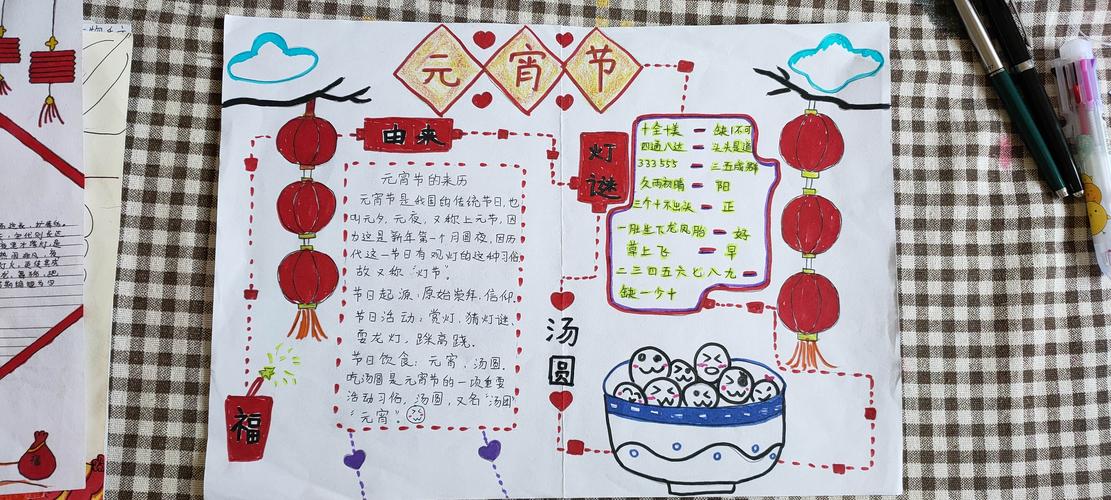 元宵节
由来
元宵节的来历
元宵节是我国的传统节日,也
叫元夕、元夜,又称上元节,因
为这是新年第一个月圆夜,因历
代这一节日有观灯的这种习俗
故又称“灯节”。
节日起源:原始崇拜,信仰.
节日活动:赏灯、猜灯谜、
耍龙灯,踩高跷.
节日饮食:元宵,汤圆.
吃汤圆是元宵节的一项重要
活动习俗,汤圆,又名“汤团”
“元宵”.
福
灯谜
十全十美 — 缺1不可
四通八达 — 头头是道
333 555 — 三五成群
久雨初晴 — 阳
三个十不出头 — 正
一胎生下龙凤胎 — 好
草上飞 — 早
二三四五六七八九 —
缺一少十
汤圆
福